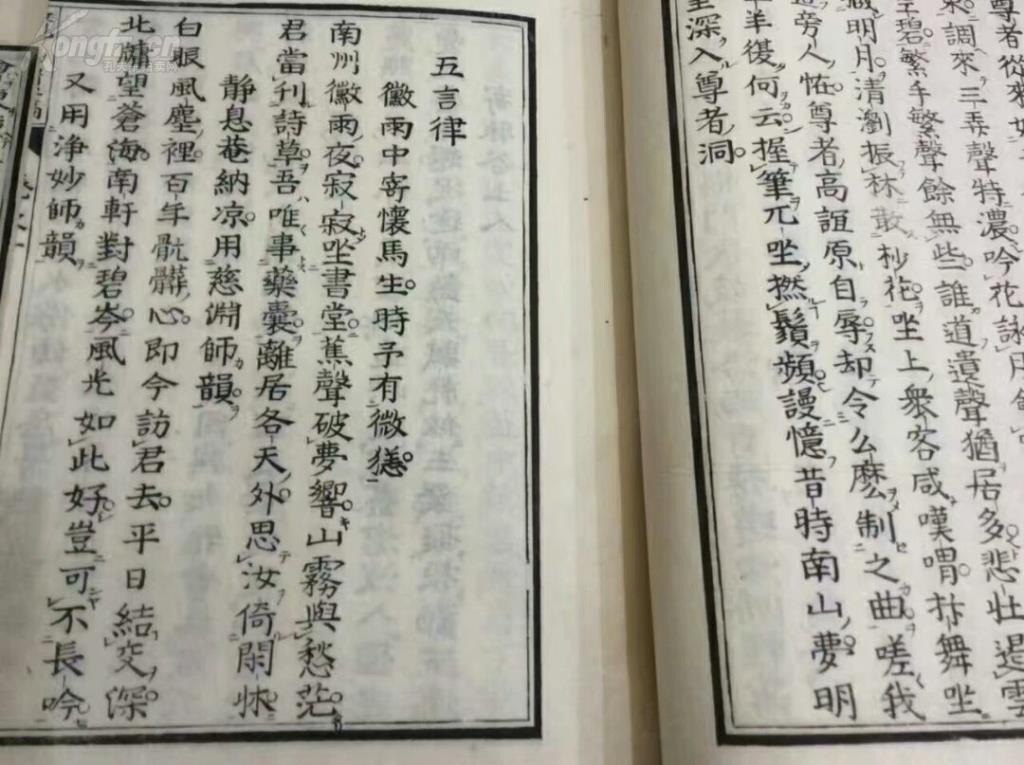 尊者從來如
調來三弄聲特濃吟花詠月句
碧繁手繁聲餘無些誰道遺聲猶居多悲壯遏雲
明月清瀏振林敢杪花坐上衆客咸嘆喟抃舞坐
旁人恠尊者高誼原自辱却令么麼制之曲嗟我
羊復何云握筆兀坐撚鬚頻謾憶昔時南山夢明
深入尊者洞
五言律
黴雨中寄懷馬生時予有微恙
南州黴雨夜寂寂坐書堂蕉聲破夢響山霧與愁茫
君當刊詩草吾唯事藥囊離居各天外思汝倚閑牀
靜息菴納凉用慈淵師韻
白振風塵裡百年骯髒心即今訪君去平日結交深
北牖望蒼海南軒對碧岑風光如此好豈可不長吟
又用浄妙師韻